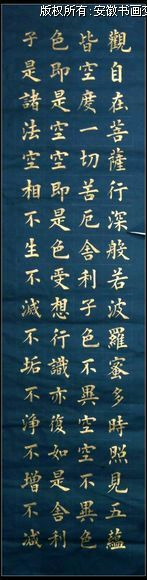 版权所有:安徽书画
觀自在菩薩行深般若波羅蜜多時照見五蘊
皆空度一切苦厄舍利子色不異空空不異色
色即是空空即是色受想行識亦復如是舍利
子是諸法空相不生不滅不垢不淨不增不減